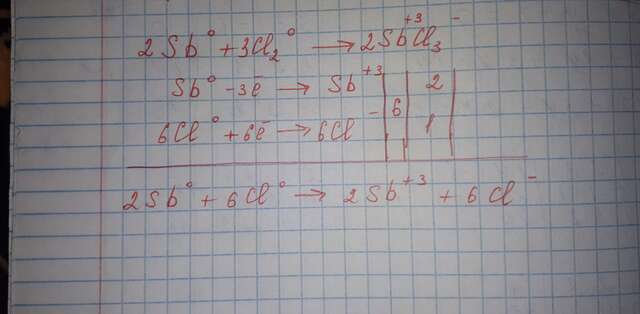 2Sb⁰ + 3Cl₂⁰ → 2Sb⁺³Cl₃⁻
Sb⁰ - 3ē → Sb⁺³ | | 2 |
6Cl⁰ + 6ē → 6Cl⁻ | 6 | 1 |
2Sb⁰ + 6Cl⁰ → 2Sb⁺³ + 6Cl⁻